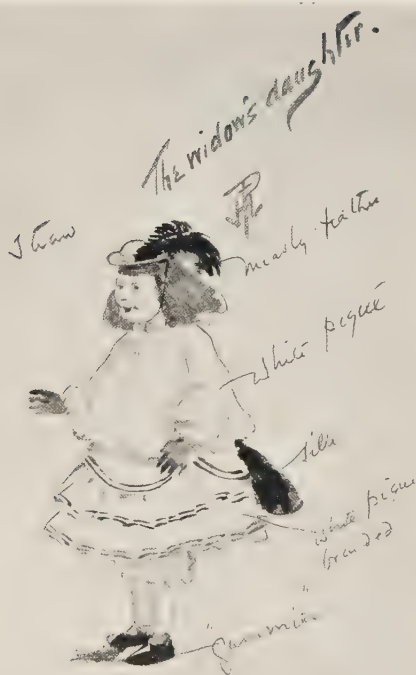 The widow's daughter.
Straw
feather
white piqué
silk
white piqué
braided